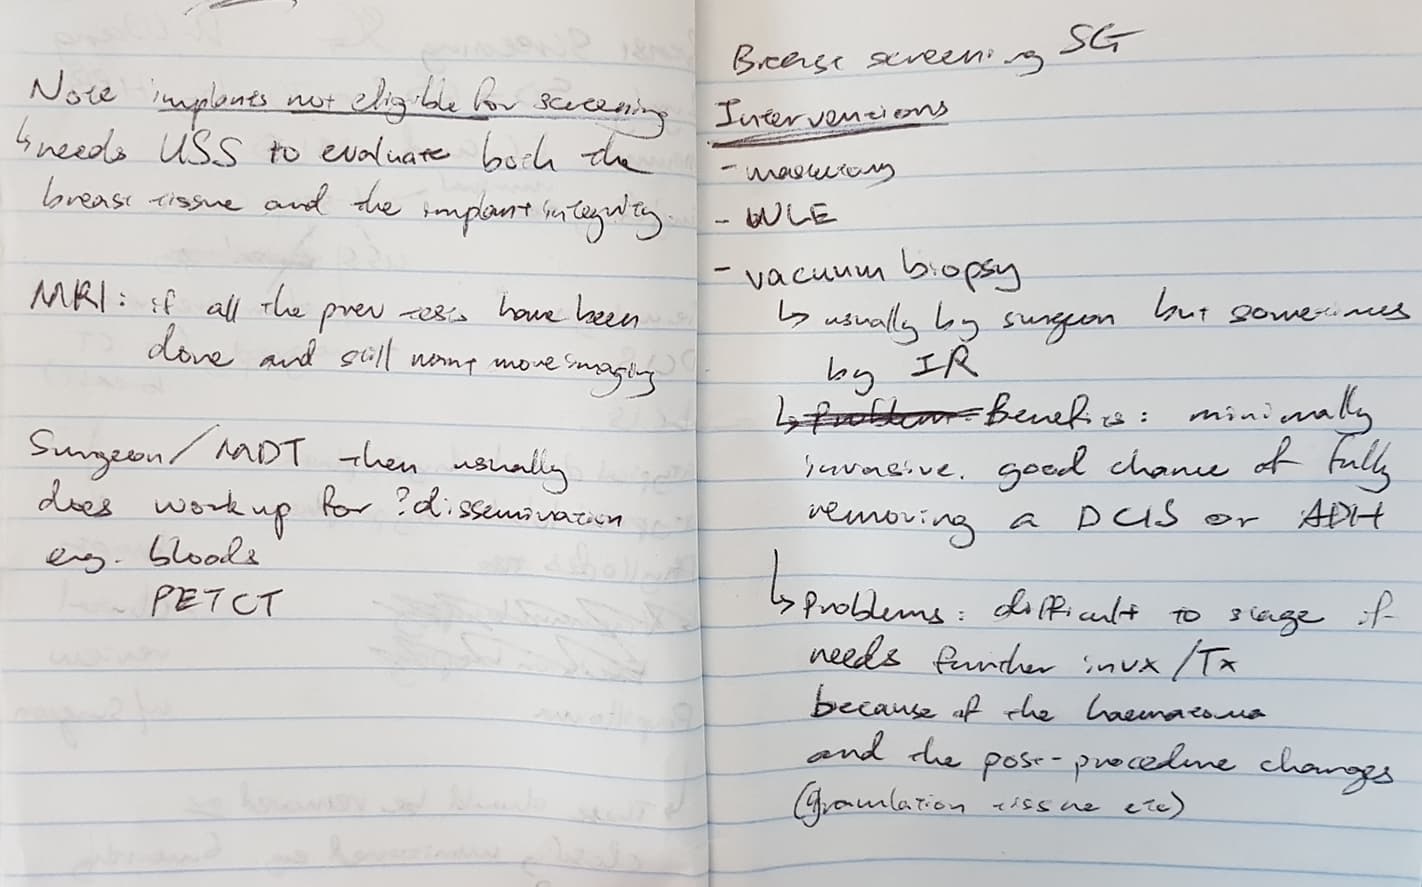 Note implants not eligible for screening
↳ needs USS to evaluate both the
breast tissue and the implant integrity.
MRI: if all the prev tests have been
done and still want more imaging
Surgeon/MDT then usually
does workup for ?dissemination
eg. bloods
PETCT
Breast screening SG
Interventions
- mastectomy
- WLE
- vacuum biopsy
↳ usually by surgeon but sometimes
by IR
↳ Problem Benefits: minimally
invasive. good chance of fully
removing a DCIS or ADH
↳ Problems: difficult to stage if
needs further invx/Tx
because of the haematoma
and the post-procedure changes
(granulation tissue etc)